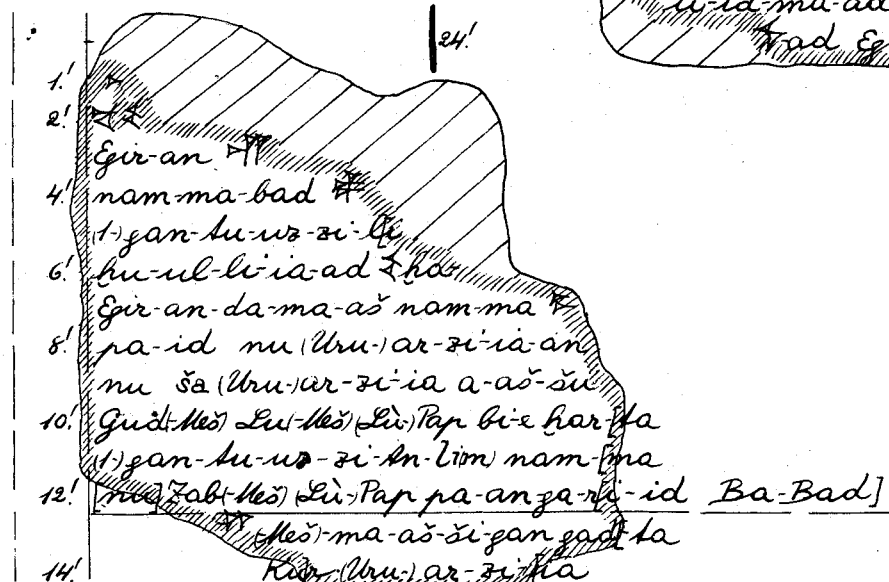 u-id-mu-ad
24!
-ad Eg
1!
2!
Egir-an
4! nam-ma-bad
(1-)gan-tu-uz-zi-li
6! ḫu-ul-li-ia-ad ḫar
Egir-an-da-ma-aš nam-ma
8! pa-id nu (Uru-)ar-zi-ia-an
nu ša (Uru-)ar-zi-ia a-aš-šu
10! Gud(-Meš) Lu(-Meš) (Lù-)Pap bi-e ḫar-[ta
(1-)gan-tu-uz-zi-An-lim) nam-[ma
12! [nu] Zab(-Meš) (Lù-)Pap pa-an-ga-ri-id Ba-Bad]
(Meš)-ma-aš-ši-gan gad-[ta
14! Kur (Uru-)ar-zi-[ia